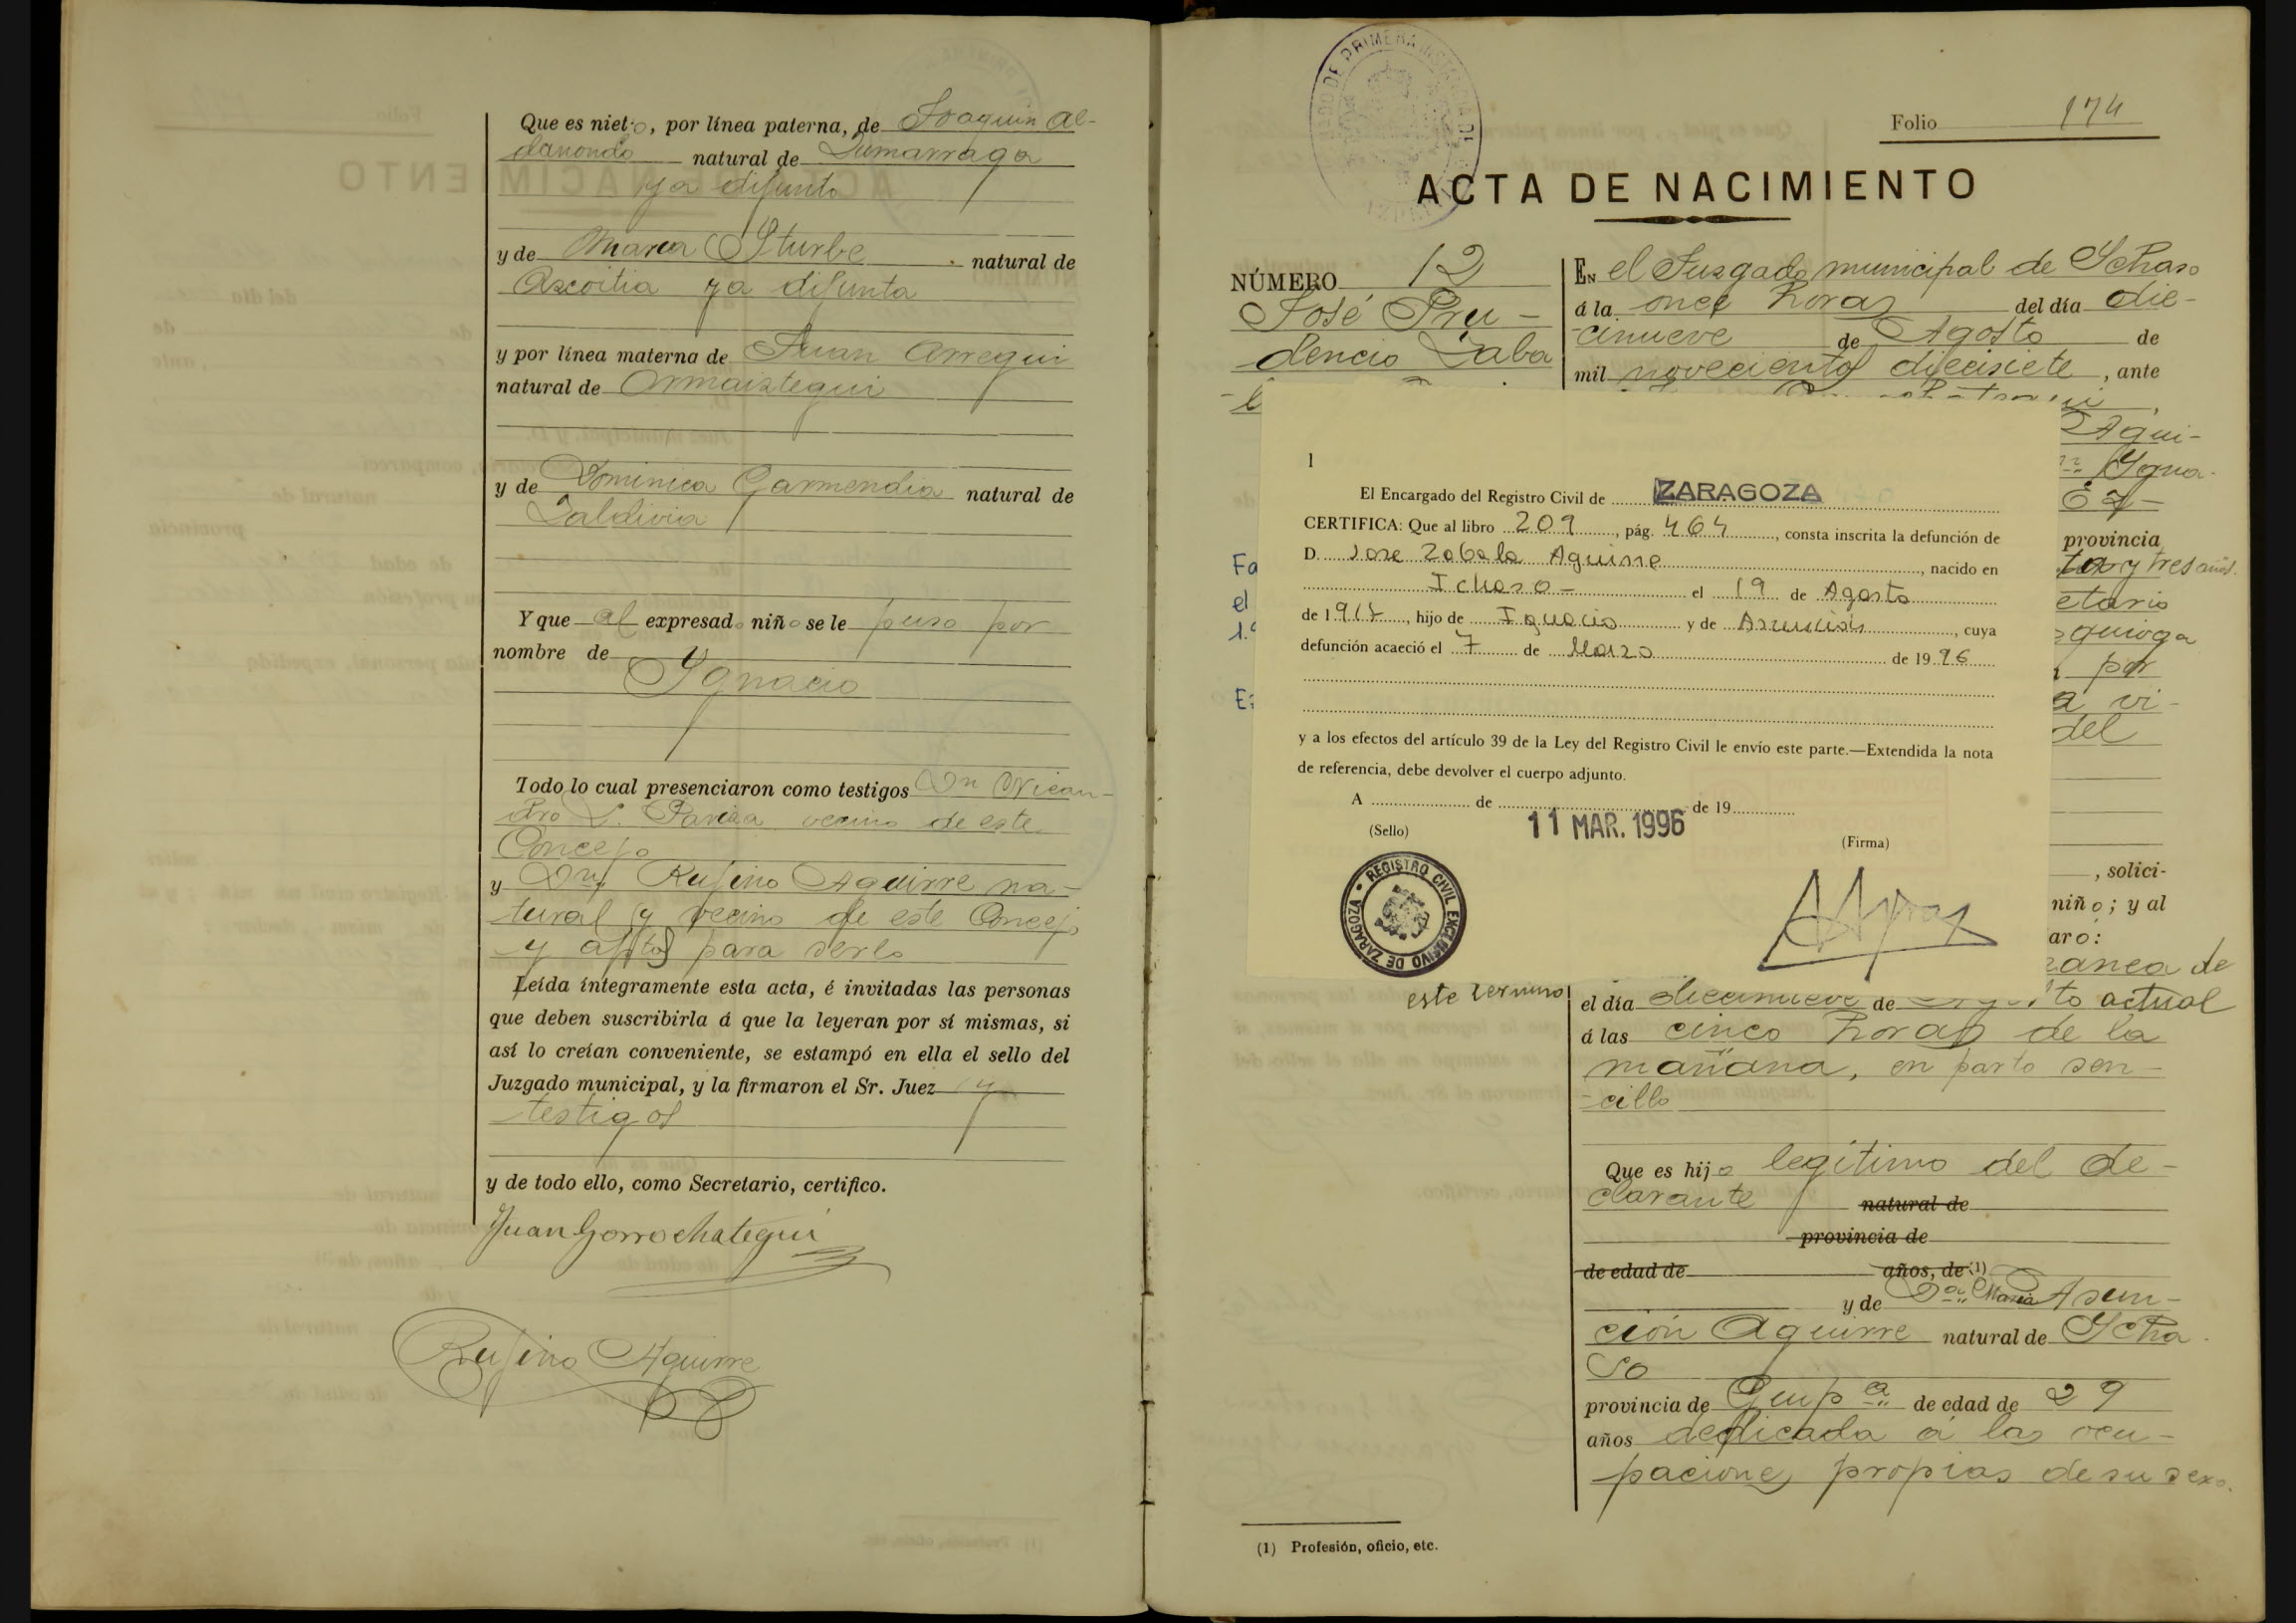 Que es nieto, por línea paterna, de Joaquin Al-
danondo natural de Zumarraga
ya difunto
y de Maria Yturbe natural de
Azcoitia ya difunta
y por línea materna de Juan Arregui
natural de Ormaiztegui
y de Dominica Garmendia natural de
Zaldivia
Y que al expresado niño se le puso por
nombre de
Ygnacio
Todo lo cual presenciaron como testigos Dn Nican-
dro L. vecino de este
Concejo
y Dn Rufino Aguirre na-
tural y vecino de este Concejo
y aptos para serlo
Leída íntegramente esta acta, é invitadas las personas
que deben suscribirla á que la leyeran por sí mismas, si
así lo creían conveniente, se estampó en ella el sello del
Juzgado municipal, y la firmaron el Sr. Juez y
testigos
y de todo ello, como Secretario, certifico.
Juan Gorrochategui
Rufino Aguirre
Folio 174
ACTA DE NACIMIENTO
NÚMERO 12
José Pru-
dencio Zaba
EN el Juzgado municipal de Ychaso
á la once horas del día die-
cinueve de Agosto de
mil novecientos diecisiete, ante
Agui-
Ygna-
provincia
ta y tres años.
etario
quioga
por
a vi-
del
, solici-
niño; y al
aro:
zanea de
1
El Encargado del Registro Civil de ZARAGOZA
CERTIFICA: Que al libro 209, pág. 464, consta inscrita la defunción de
D. Jose Zabala Aguirre, nacido en
Ichaso - el 19 de Agosto
de 1917, hijo de Ignacio y de Asunción, cuya
defunción acaeció el 7 de Marzo de 1996
y a los efectos del artículo 39 de la Ley del Registro Civil le envío este parte.—Extendida la nota
de referencia, debe devolver el cuerpo adjunto.
A de de 19
11 MAR. 1996
(Sello)
(Firma)
REGISTRO CIVIL EXCLUSIVO DE ZARAGOZA
este termino
el día diecinueve de Agosto actual
á las cinco horas de la
mañana, en parto sen-
cillo
Que es hijo legítimo del de-
clarante natural de
provincia de
de edad de años, de (1)
y de Da. Maria Asun-
ción Aguirre natural de Ycha
so
provincia de Guipa. de edad de 29
años dedicada á las ocu-
paciones propias de su sexo.
(1) Profesión, oficio, etc.